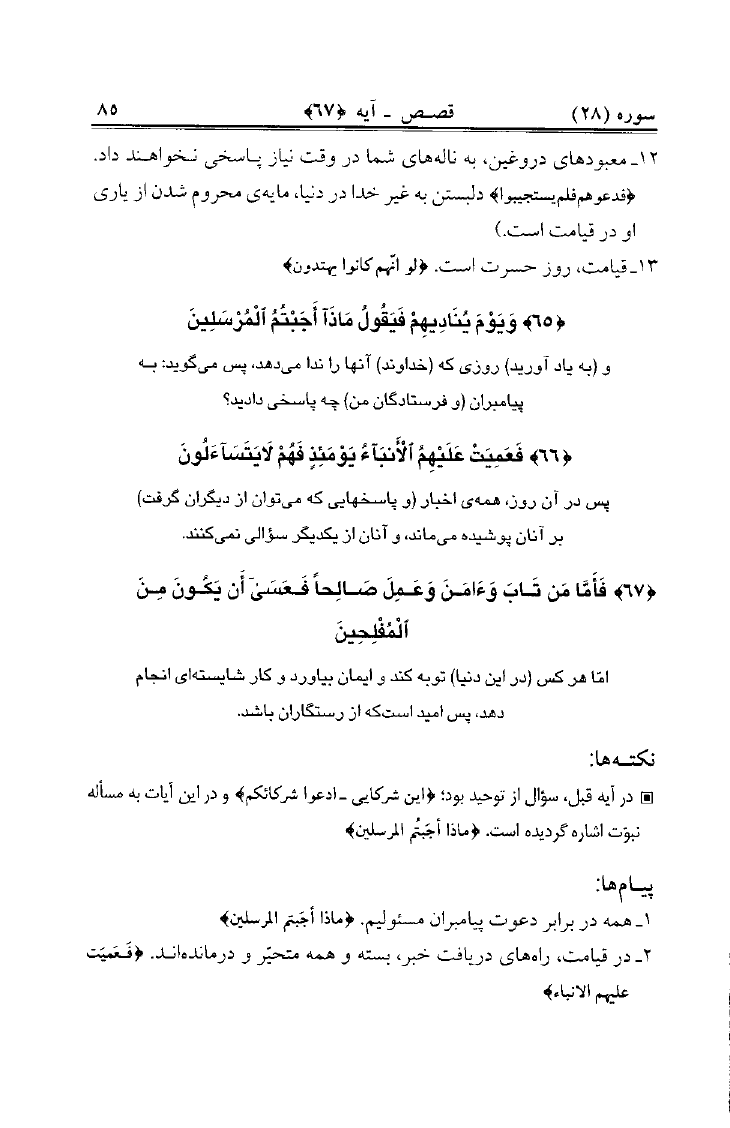 سوره (۲۸) قصص ـ آیه ﴿۶۷﴾ ۸۵
۱۲ـ معبودهای دروغین، به ناله‌های شما در وقت نیاز پاسخی نخواهند داد.
﴿فدعوهم فلم یستجیبوا﴾ دلبستن به غیر خدا در دنیا، مایه‌ی محروم شدن از یاری
او در قیامت است.)
۱۳ـ قیامت، روز حسرت است. ﴿لو انّهم کانوا یهتدون﴾
﴿۶۵﴾ وَيَوْمَ يُنَادِيهِمْ فَيَقُولُ مَاذَآ أَجَبْتُمُ ٱلْمُرْسَلِينَ
و (به یاد آورید) روزی که (خداوند) آنها را ندا می‌دهد، پس می‌گوید: به
پیامبران (و فرستادگان من) چه پاسخی دادید؟
﴿۶۶﴾ فَعَمِيَتْ عَلَيْهِمُ ٱلْأَنبَآءُ يَوْمَئِذٍ فَهُمْ لَايَتَسَآءَلُونَ
پس در آن روز، همه‌ی اخبار (و پاسخهایی که می‌توان از دیگران گرفت)
بر آنان پوشیده می‌ماند، و آنان از یکدیگر سؤالی نمی‌کنند.
﴿۶۷﴾ فَأَمَّا مَن تَابَ وَءَامَنَ وَعَمِلَ صَالِحاً فَعَسَىٰٓ أَن يَكُونَ مِنَ
ٱلْمُفْلِحِينَ
امّا هر کس (در این دنیا) توبه کند و ایمان بیاورد و کار شایسته‌ای انجام
دهد، پس امید است‌که از رستگاران باشد.
نکته‌ها:
▣ در آیه قبل، سؤال از توحید بود؛ ﴿این شرکایی ـ ادعوا شرکائکم﴾ و در این آیات به مسأله
نبوّت اشاره گردیده است. ﴿ماذا أجَبتُم المرسلین﴾
پیام‌ها:
۱ـ همه در برابر دعوت پیامبران مسئولیم. ﴿ماذا أجَبتم المرسلین﴾
۲ـ در قیامت، راه‌های دریافت خبر، بسته و همه متحیّر و درمانده‌اند. ﴿فَعَمِیَت
علیهم الانباء﴾